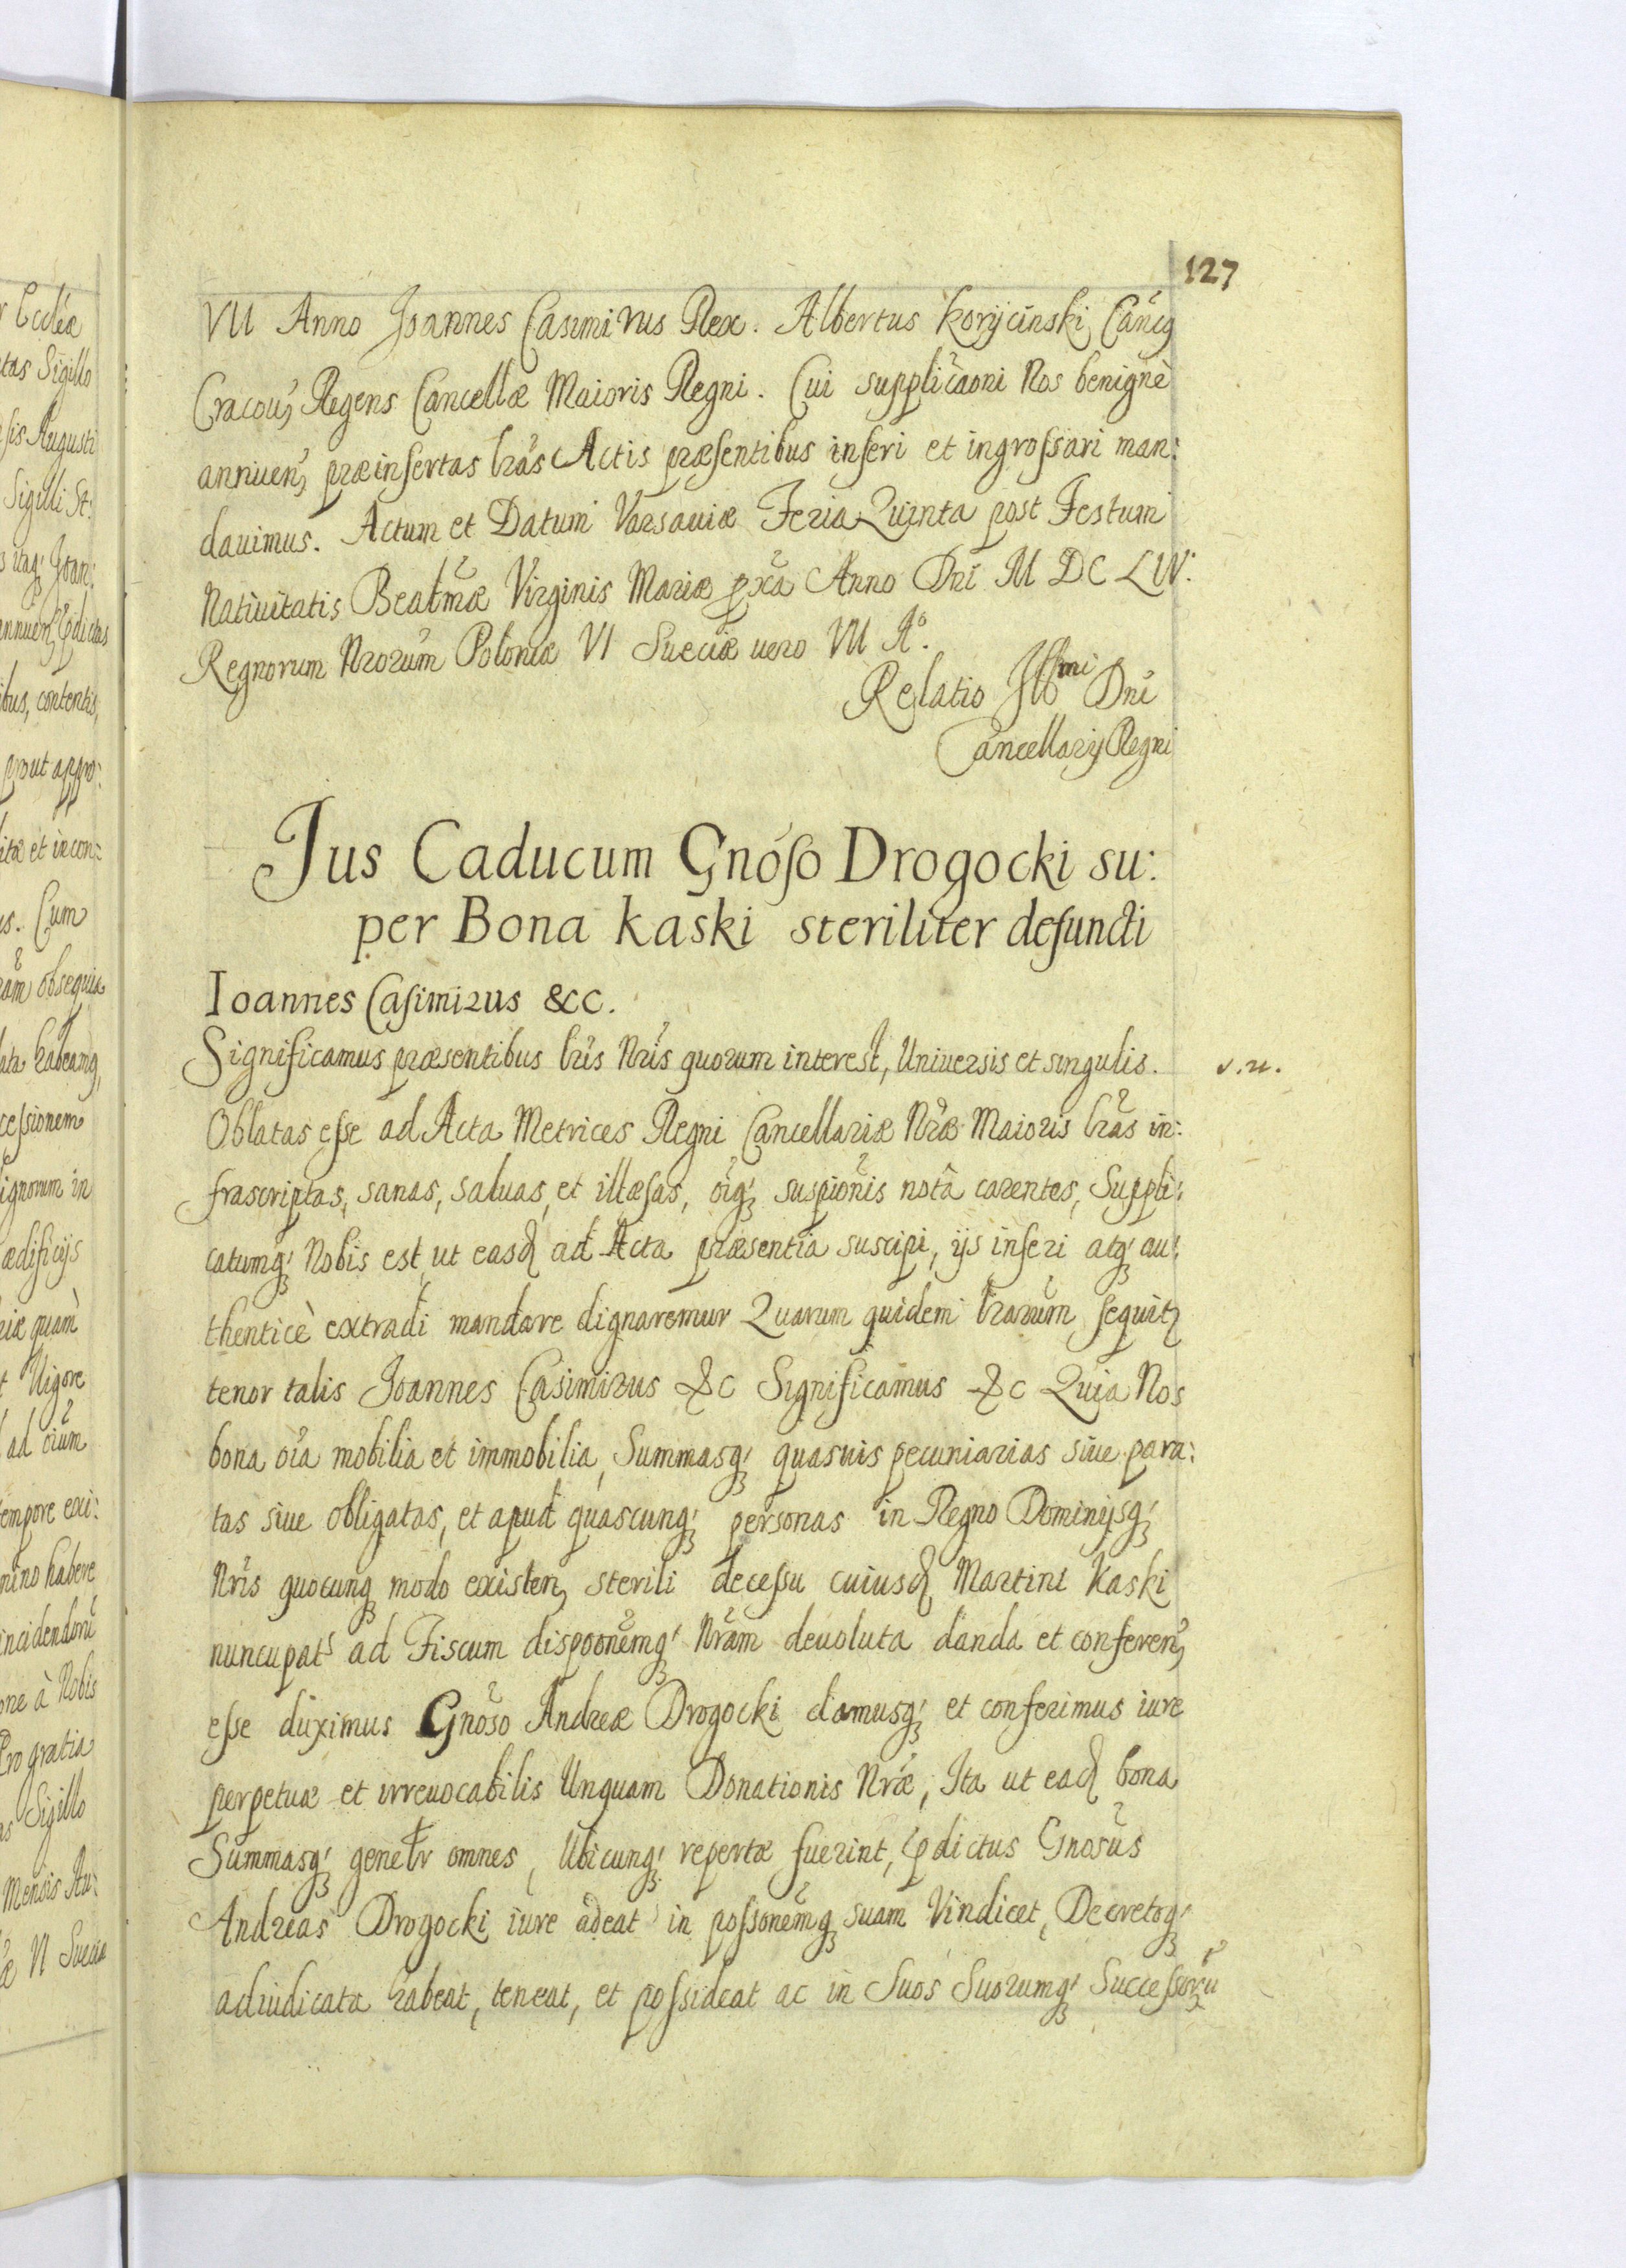 127
VII Anno Joannes Casimirus Rex. Albertus Koryciński Cancꝗ
Cracou, Regens Cancellæ Maioris Regni. Cui supplicãoni Nos benignè
annuen, præinsertas lras Actis præsentibus inseri et ingrossari man:
dauimus. Actum et Datum Varsauiæ Feria Quinta post Festum
Natiuitatis Beatmæ Virginis Mariæ pxa Anno Dni M DC LIV.
Regnorum Nrorum Poloniæ VI Sueciæ uero VII Aº.
Relatio Illmi Dni
Cancellarij Regni
Jus Caducum Gnoso Drogocki su:
per Bona Kaski steriliter defuncti
Ioannes Casimirus &c.
Significamus præsentibus lris Nris quorum interest, Uniuersis et singulis.
Oblatas esse ad Acta Metrices Regni Cancellariæ Nræ Maioris lras in:
frascriptas, sanas, saluas, et illæsas, oiqꝫ suspionis notâ carentes, Suppli:
catumqꝫ Nobis est, ut easd ad Acta præsentia suscipi, ijs inseri atqꝫ au:
thenticè extradi mandare dignaremur Quarum quidem lrarum sequitꝫ
tenor talis Joannes Casimirus &c Significamus &c Quia Nos
bona oia mobilia et immobilia, Summasqꝫ quasuis pecuniarias siue para:
tas siue obligatas, et apud quascunqꝫ personas in Regno Dominijsqꝫ
Nris quocunqꝫ modo existen, sterili decessu cuiusd Martini Kaski
nuncupats ad Fiscum dispoonemqꝫ Nram deuoluta danda et conferen,
esse duximus Gnoso Andreæ Drogocki damusqꝫ et conferimus iure
perpetuæ et irreuocabilis Unquam Donationis Nræ, Ita ut ead bona
Summasqꝫ genetr omnes, Ubicunqꝫ repertæ fuerint, pdictus Gnosus
Andreas Drogocki iure adeat in possonemqꝫ suam Vindicet, Decretoqꝫ
adiudicata habeat, teneat, et possideat ac in Suos Suorumqꝫ Successorũ